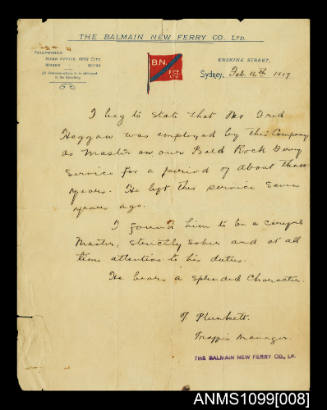 THE BALMAIN NEW FERRY CO. LTD.
TELEPHONES
HEAD OFFICE
ERSKINE STREET,
B.N.
F Co
LTD
Sydney, Feb. 12th 1917
I beg to state that Mr Fred
Heggan was employed by this Company
as Master on our Bald Rock Ferry
Service for a period of about three
years. He left this service seven
years ago.
I found him to be a careful
Master, strictly sober and at all
times attentive to his duties.
He bears a splendid Character.
Plunkett.
Traffic Manager.
THE BALMAIN NEW FERRY CO., LD.
ANMS1099[008]